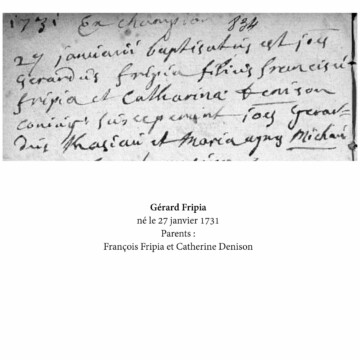 1731 En champion 834
27 januarii baptisatus est joes
Gerardus fripia filius francisci
fripia et Catharina Denison
coniug: susceperunt joes Gerar-
dus et Maria agnes Michau
Gérard Fripia
né le 27 janvier 1731
Parents :
François Fripia et Catherine Denison